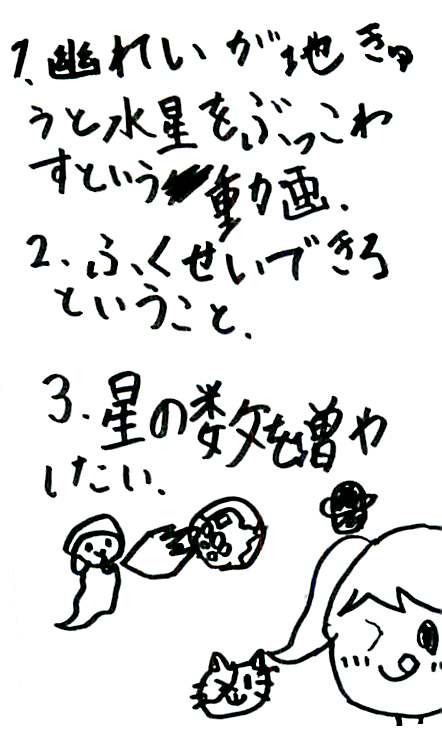 1.幽れいが地きゅ
うと水星をぶっこわ
すという動画.
2.ふくせいできる
ということ.
3.星の数を増や
したい.